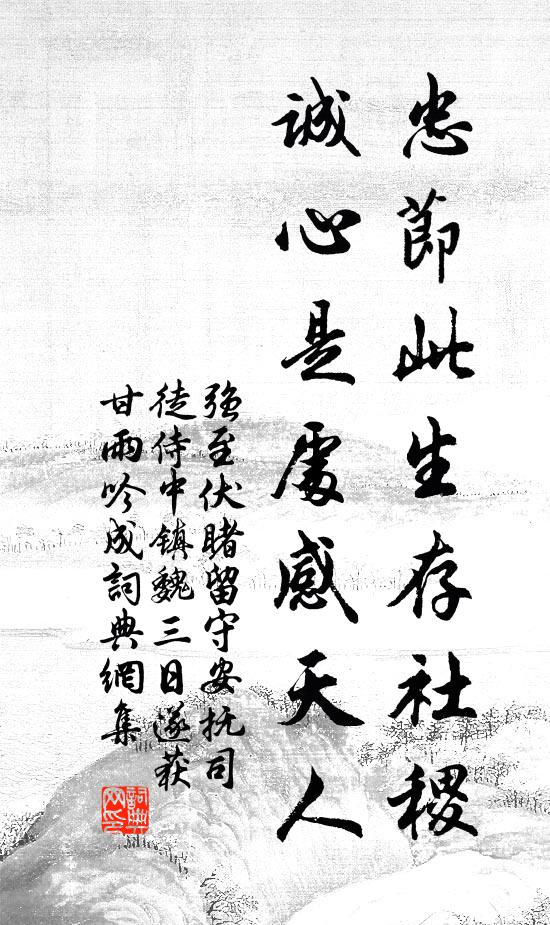 忠節此生存社稷
誠心是處感天人
強至伏睹留守安抚司
徒侍中镇魏三日遂获
甘雨吟成詞典網集
詞典网印